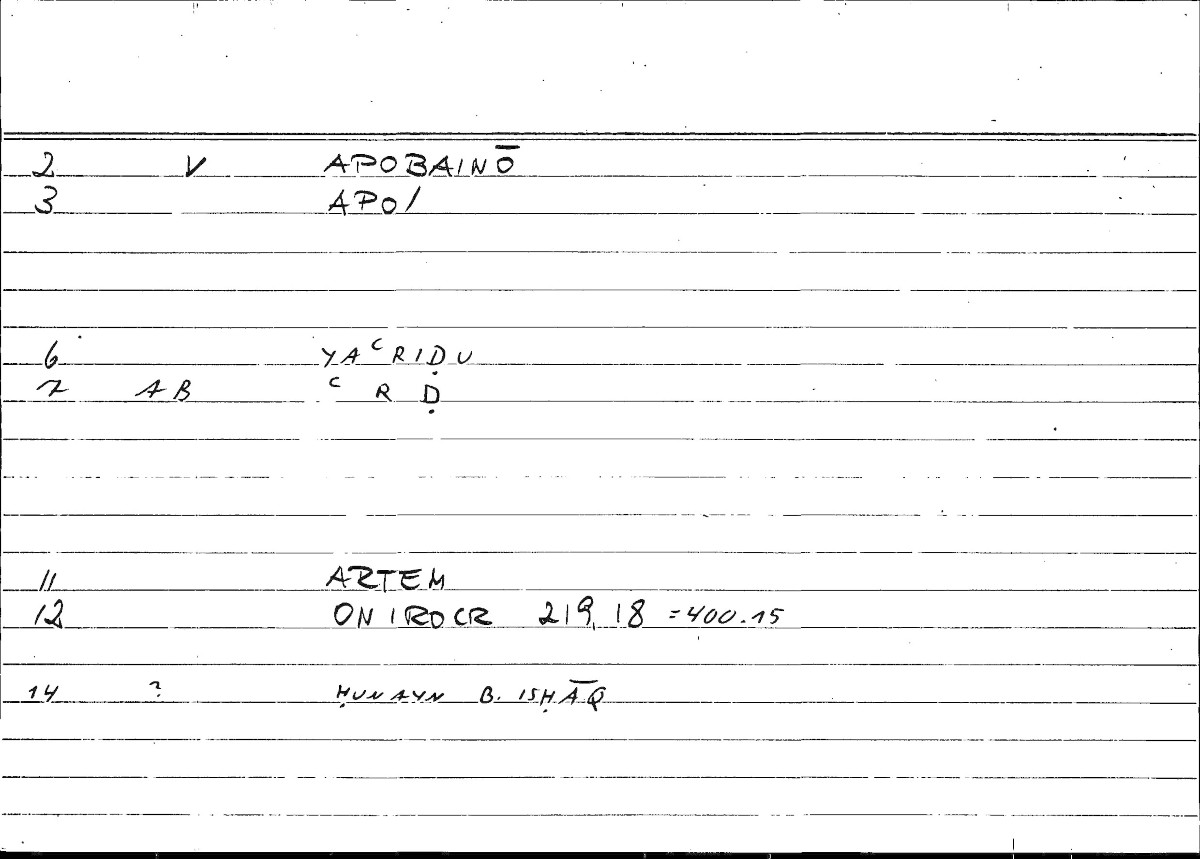 2 V APOBAINŌ
3 APO/
6 YAᶜRIḌU
7 AB ᶜ R Ḍ
11 ARTEM
12 ONIROCR 219,18 =400.15
14 ? ḤUNAYN B. ISḤĀQ